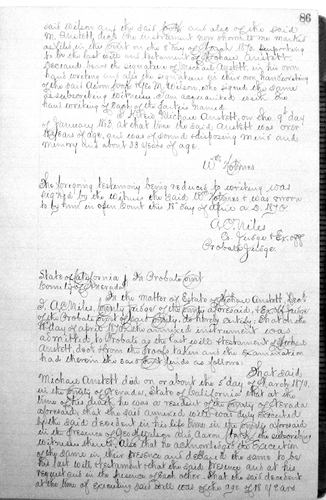 86
said Wilson and the said Booth and also of the said
M. Anstett decd. the instrument now shown to me marked
as filed in the Court on the 5 day of March 1870 purporting
to be the last will and testament of Michael Anstett
Deceased bears the signature of Michael Anstett in his own
hand writing and also the signature in their own handwriting
of the said and Geo M. Wilson, who signed the same
as subscribing witnesses. I am acquainted with the
hand writing of each of the parties named
I knew Michael Anstett, on the 9th day
of January 1863 at that time the said Anstett was over
18 years of age, and was of sound disposing mind and
memory his about 33 years of age.
Wm Holmes
The foregoing testimony being reduced to writing was
signed by the witness the said Wm Holmes & was sworn
to by him in open Court this 18th day of April A.D. 1870
A.C. Niles
Co. Judge & Ex. off
Probate Judge
State of California } In Probate Court
County of Nevada
In the matter of Estate of Michael Anstett Decd
I A.C. Niles, County Judge of the County aforesaid, & Ex Off Judge
of the Probate Court of said County, do hereby certify that on the
18 day of April 1870 the annexed instrument was
admitted to Probate as the last will & testament of Michael
Anstett decd & from the proofs taken and the examination
had therein the said Court finds as follows
That said
Michael Anstett died on or about the 5 day of March 1870,
in the County of Nevada, State of California that at the
time of his death he was a resident of the County of Nevada
aforesaid, that the said annexed will was duly executed
by the said decedent in his life time in the County aforesaid
in the presence of Geo M Wilson and the subscribing
witnesses thereto. Also that he acknowledged the execution
of the same in their presence and declared the same to be
his last will & testament & that the said witnesses at his
request and in the presence of each other that the said decedent
at the time of executing said will was of the age of 18 years